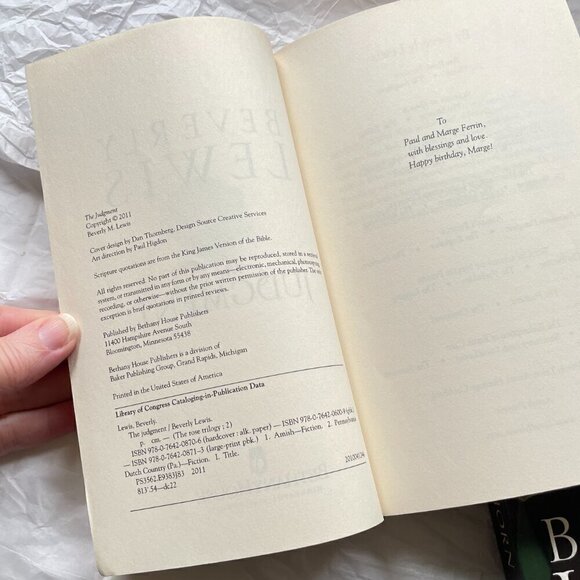 The Judgment
Copyright © 2011
Beverly M. Lewis
Cover design by Dan Thornberg, Design Source Creative Services
Art direction by Paul Higdon
Scripture quotations are from the King James Version of the Bible.
All rights reserved. No part of this publication may be reproduced, stored in a retrieval
system, or transmitted in any form or by any means—electronic, mechanical, photocopying,
recording, or otherwise—without the prior written permission of the publisher. The only
exception is brief quotations in printed reviews.
Published by Bethany House Publishers
11400 Hampshire Avenue South
Bloomington, Minnesota 55438
Bethany House Publishers is a division of
Baker Publishing Group, Grand Rapids, Michigan
Printed in the United States of America
Library of Congress Cataloging-in-Publication Data
Lewis, Beverly.
The judgment / Beverly Lewis.
p. cm. — (The rose trilogy ; 2)
ISBN 978-0-7642-0870-6 (hardcover : alk. paper) — ISBN 978-0-7642-0600-9 (pbk.)
— ISBN 978-0-7642-0871-3 (large-print pbk.) 1. Amish—Fiction. 2. Pennsylvania
Dutch Country (Pa.)—Fiction. I. Title.
PS3562.E9383J83 2011
813'.54—dc22
To
Paul and Marge Ferrin,
with blessings and love.
Happy birthday, Marge!